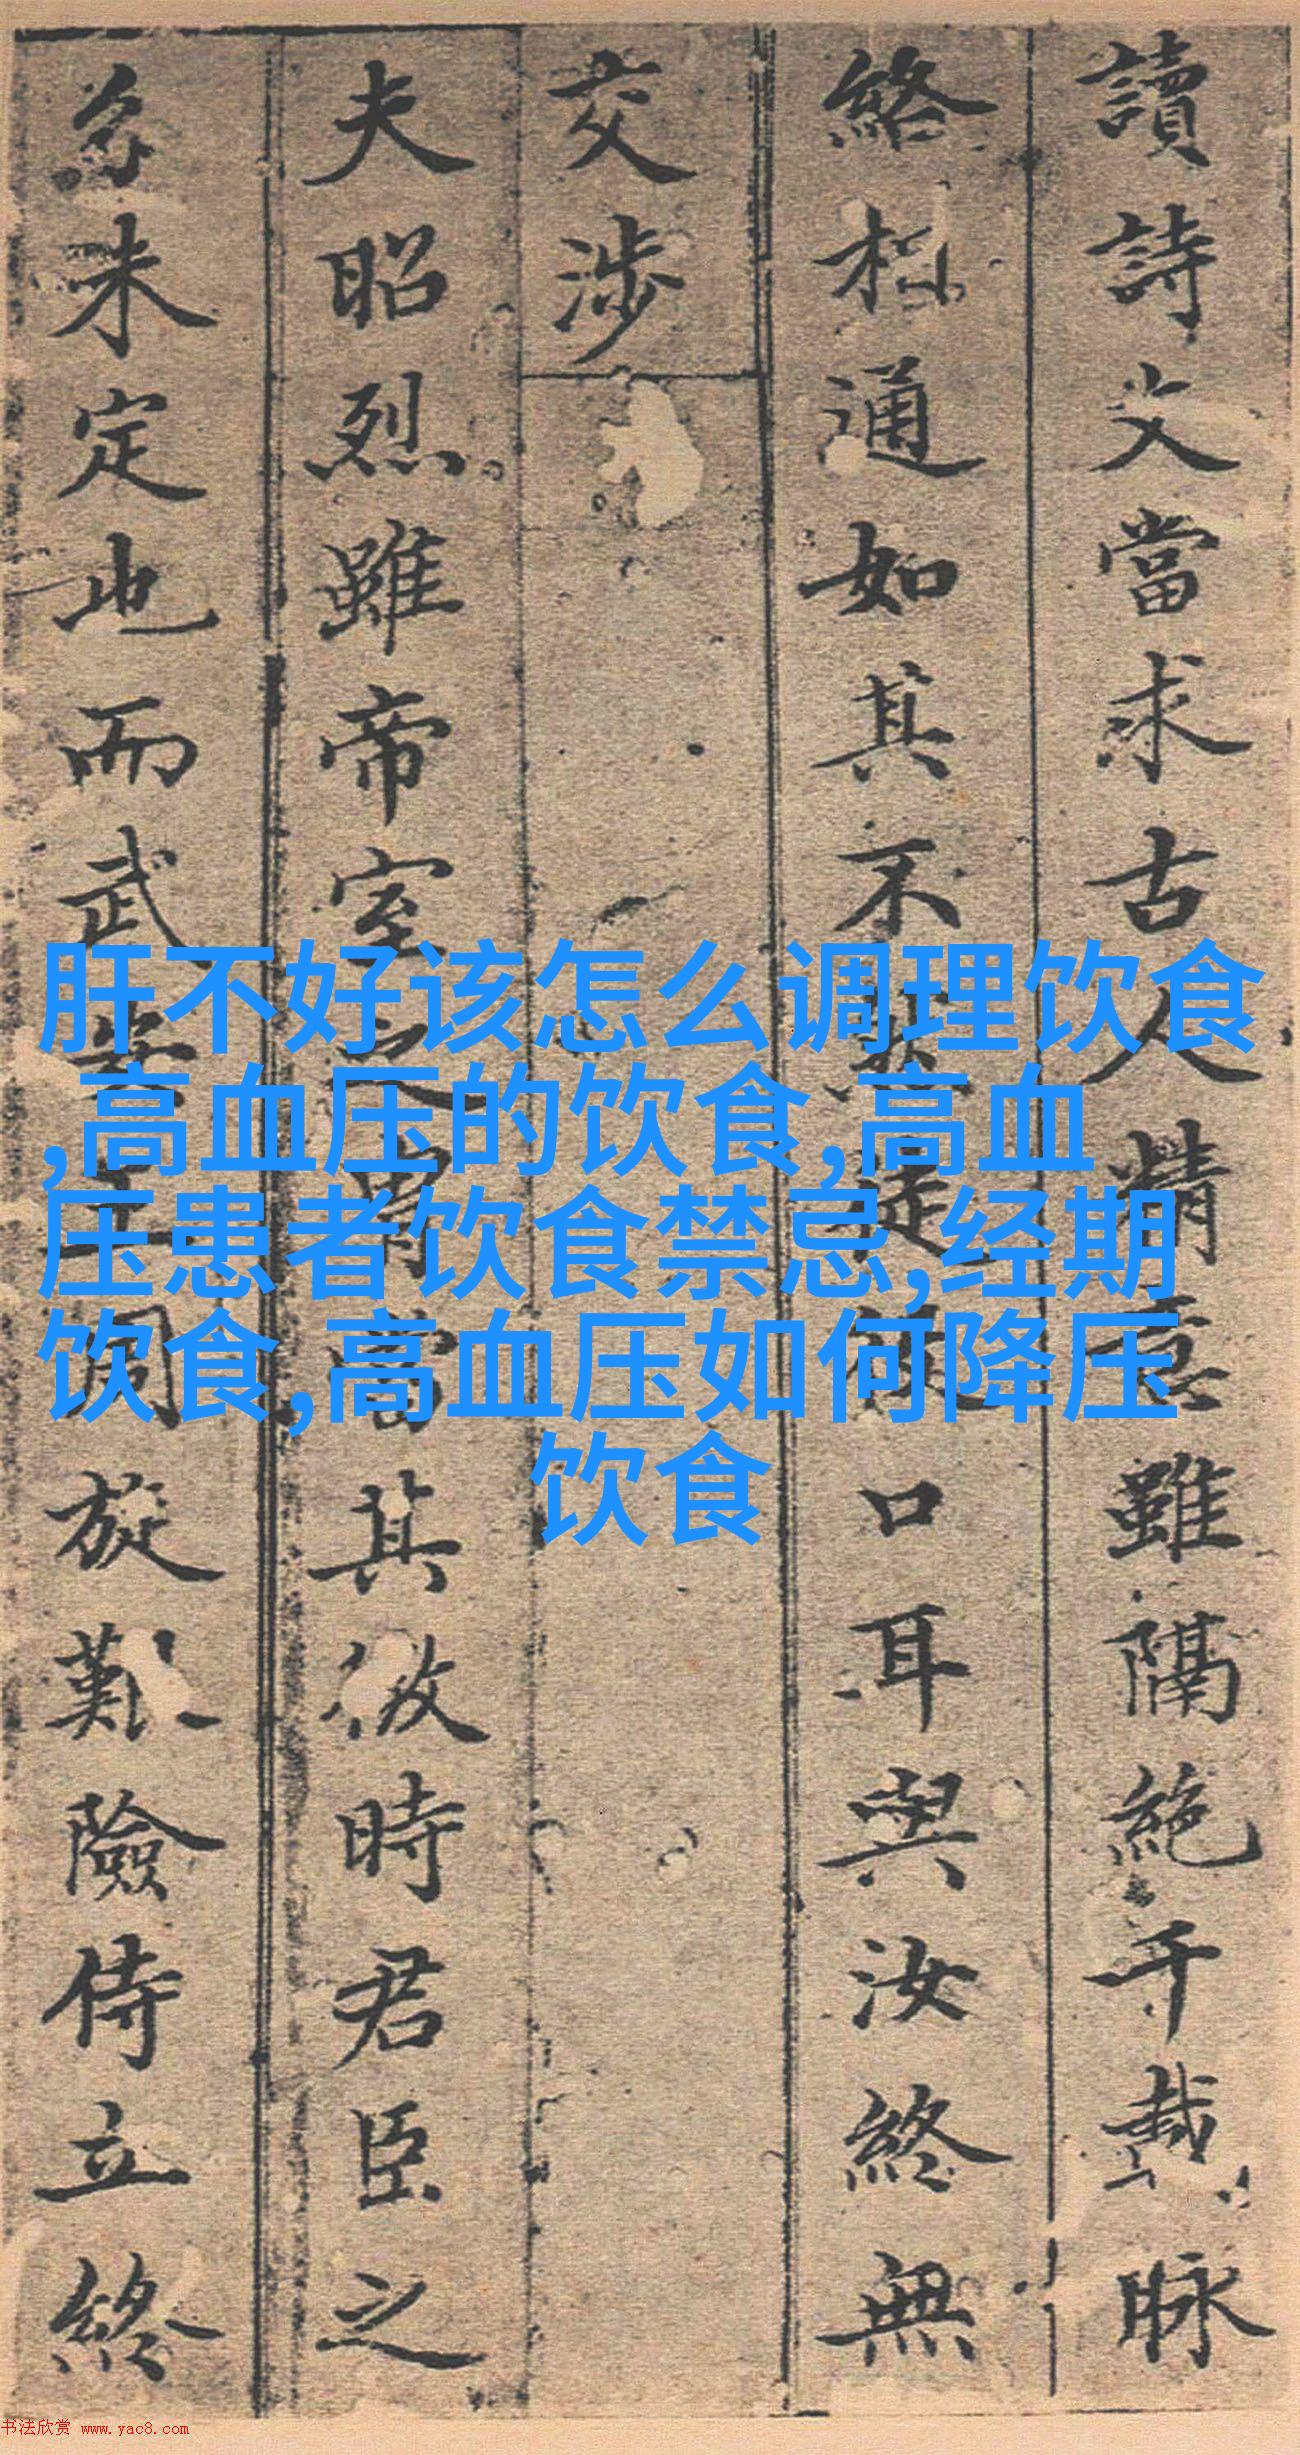 讀詩文當求古人精意雖隔絶千載脉
絡相通如其不然是從口耳與汝終無
交涉
夫昭烈雖帝室之胄當其微時君臣之
分未定也而武安王周旋難險侍立終
肝不好该怎么调理饮食
,高血压的饮食,高血
压患者饮食禁忌,经期
饮食,高血压如何降压
饮食
书法欣赏 www.yac8.com